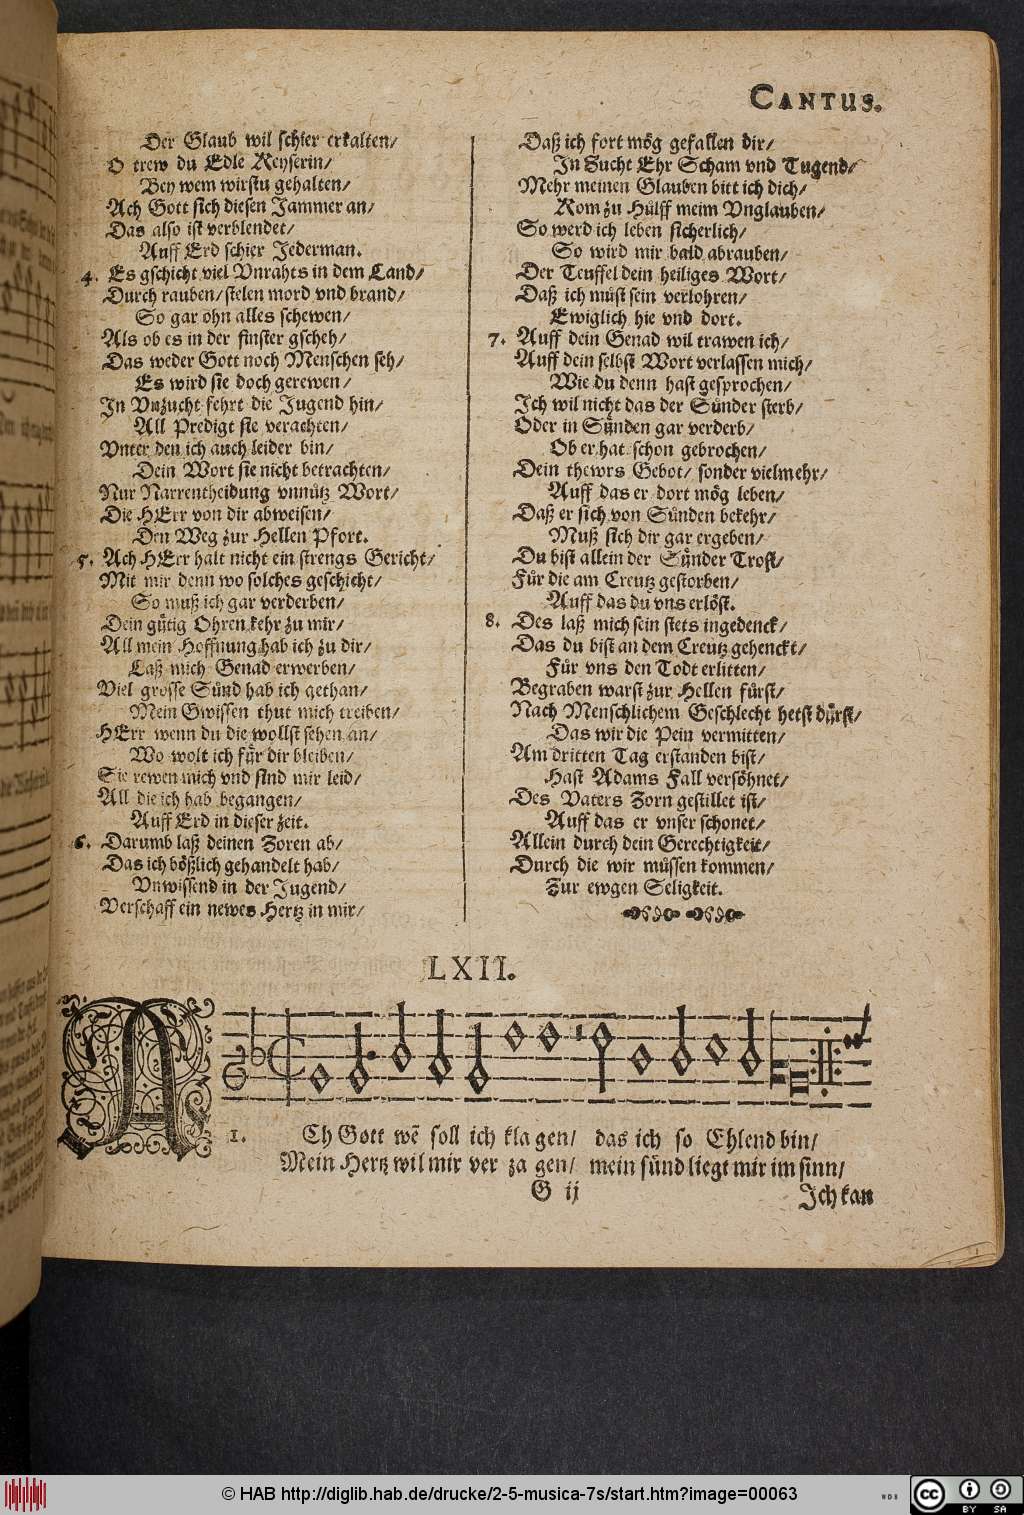 CANTUS.
Der Glaub wil schier erkalten/
O trew du Edle Keyserin/
Bey wem wirstu gehalten/
Ach Gott sich diesen Jammer an/
Das also ist verblendet/
Auff Erd schier Jederman.
4. Es gschicht viel Vnrahts in dem Land/
Durch rauben/ stelen mord vnd brand/
So gar ohn alles schewen/
Als ob es in der finster gscheh/
Das weder Gott noch Menschen seh/
Es wird sie doch gerewen/
In Vnzucht fehrt die Jugend hin/
All Predigt sie verachten/
Vnter den ich auch leider bin/
Dein Wort sie nicht betrachten/
Nur Narrentheidung vnnütz Wort/
Die HErr von dir abweisen/
Den Weg zur Hellen Pfort.
5. Ach HErr halt nicht ein strengs Gericht/
Mit mir denn wo solches geschicht/
So muß ich gar verderben/
Dein gütig Ohren kehr zu mir/
All mein Hoffnung hab ich zu dir/
Laß mich Genad erwerben/
Viel grosse Sünd hab ich gethan/
Mein Gwissen thut mich treiben/
HErr wenn du die wollst sehen an/
Wo wolt ich für dir bleiben/
Sie rewen mich vnd sind mir leid/
All die ich hab begangen/
Auff Erd in dieser zeit.
6. Darumb laß deinen Zoren ab/
Das ich bößlich gehandelt hab/
Vnwissend in der Jugend/
Verschaff ein newes Hertz in mir/
Daß ich fort mög gefallen dir/
In Zucht Ehr Scham vnd Tugend/
Mehr meinen Glauben bitt ich dich/
Kom zu Hülff meim Vnglauben/
So werd ich leben sicherlich/
So wird mir bald abrauben/
Der Teuffel dein heiliges Wort/
Daß ich müst sein verlohren/
Ewiglich hie vnd dort.
7. Auff dein Genad wil trawen ich/
Auff dein selbst Wort verlassen mich/
Wie du denn hast gesprochen/
Ich wil nicht das der Sünder sterb/
Oder in Sünden gar verderb/
Ob er hat schon gebrochen/
Dein thewrs Gebot/ sonder vielmehr/
Auff das er dort mög leben/
Daß er sich von Sünden bekehr/
Muß sich dir gar ergeben/
Du bist allein der Sünder Trost/
Für die am Creutz gestorben/
Auff das du vns erlöst.
8. Des laß mich sein stets ingedenck/
Das du bist an dem Creutz gehenckt/
Für vns den Todt erlitten/
Begraben warst zur Hellen fürst/
Nach Menschlichem Geschlecht hetst dürst/
Das wir die Pein vermitten/
Am dritten Tag erstanden bist/
Hast Adams Fall versöhnet/
Des Vaters Zorn gestillet ist/
Auff das er vnser schonet/
Allein durch dein Gerechtigkeit/
Durch die wir müssen kommen/
Zur ewgen Seligkeit.
LXII.
A
1. Ch Gott wẽ soll ich kla gen/ das ich so Ehlend bin/
Mein Hertz wil mir ver za gen/ mein sünd liegt mir im sinn/
G ij Ich kan
© HAB http://diglib.hab.de/drucke/2-5-musica-7s/start.htm?image=00063
WDB
cc BY SA